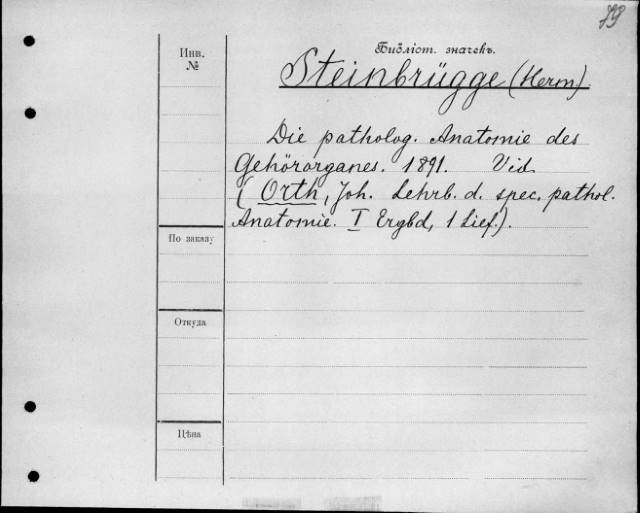 Библіот. значекъ.
Инв.
№
Steinbrügge (Herm)
Die patholog. Anatomie des
Gehörorganes. 1891. Vid
(Orth, Joh. Lehrb. d. spec. pathol.
Anatomie. I Ergbd, 1 Lief.).
По заказу
Откуда
Цѣна